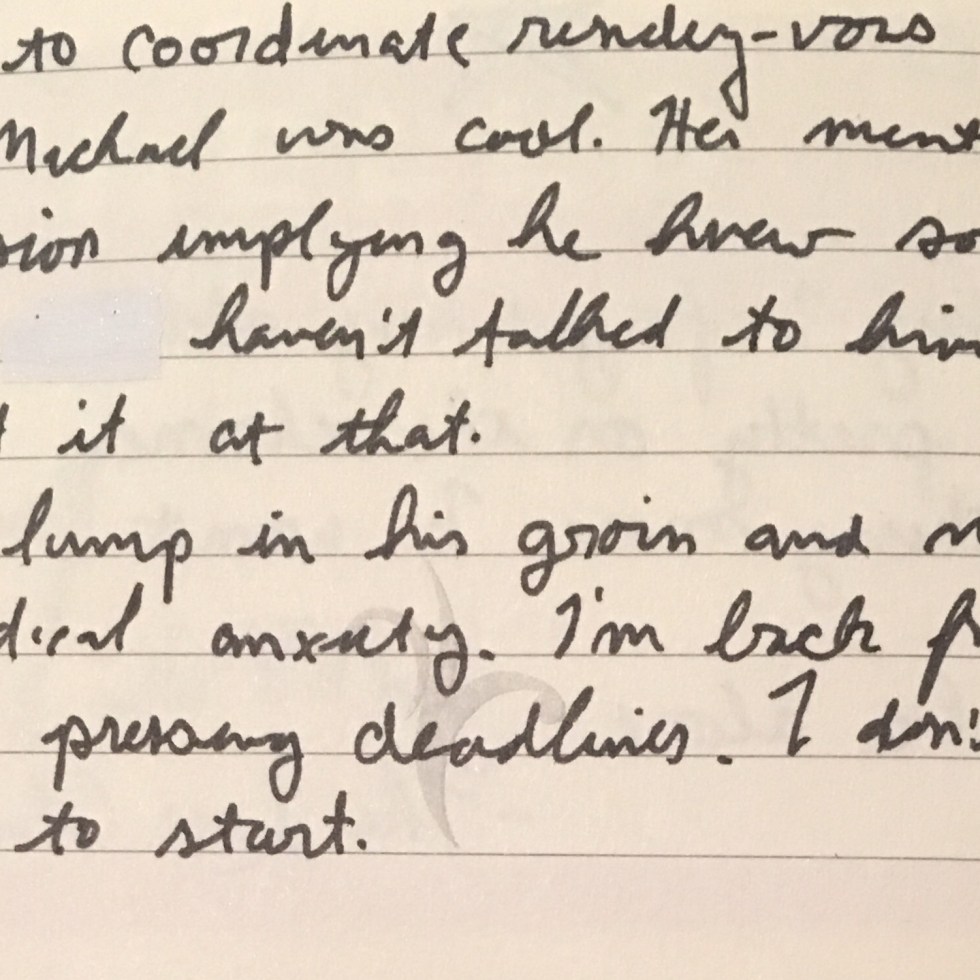 to coordinate rendez-vous
Michael was cool. Her ment
sion implying he knew so
haven't talked to him
it at that.
lump in his groin and
dical anxiety. I'm back f
pressing deadlines. I don'
to start.